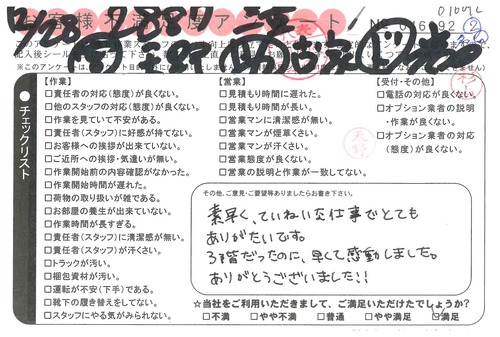 お客様不満足度アンケート
【作業】
□責任者の対応(態度)が良くない。
□他のスタッフの対応(態度)が良くない。
□作業を見ていて不安がある。
□責任者(スタッフ)に好感が持てない。
□お客様への挨拶が出来ていない。
□ご近所への挨拶・気遣いが無い。
□作業開始前の内容確認がなかった。
□作業開始時間が遅れた。
□荷物の取り扱いが雑である。
□お部屋の養生が出来ていない。
□作業時間が長すぎる。
□責任者(スタッフ)に清潔感が無い。
□責任者(スタッフ)が汗くさい。
□トラックが汚い。
□梱包資材が汚い。
□運転が不安(下手)である。
□靴下の履き替えをしてない。
□スタッフにやる気がみられない。
【営業】
□見積もり時間に遅れた。
□見積もり時間が長い。
□営業マンに清潔感が無い。
□営業マンが煙草くさい。
□営業マンが汗くさい。
□営業態度が良くない。
□営業の説明と作業が一致してない。
【受付・その他】
□電話の対応が良くない。
□オプション業者の説明
・作業が良くない。
□オプション業者の対応
(態度)が良くない。
●チェックリスト
その他、ご意見・ご要望等ありましたらお書き下さい。
素早く、ていねいな仕事でとても
ありがたいです。
3階だったのに、早くて感動しました。
ありがとうございました!!
☆当社をご利用いただきまして、ご満足いただけたでしょうか?
□不満 □やや不満 □普通 □やや満足 ☑満足